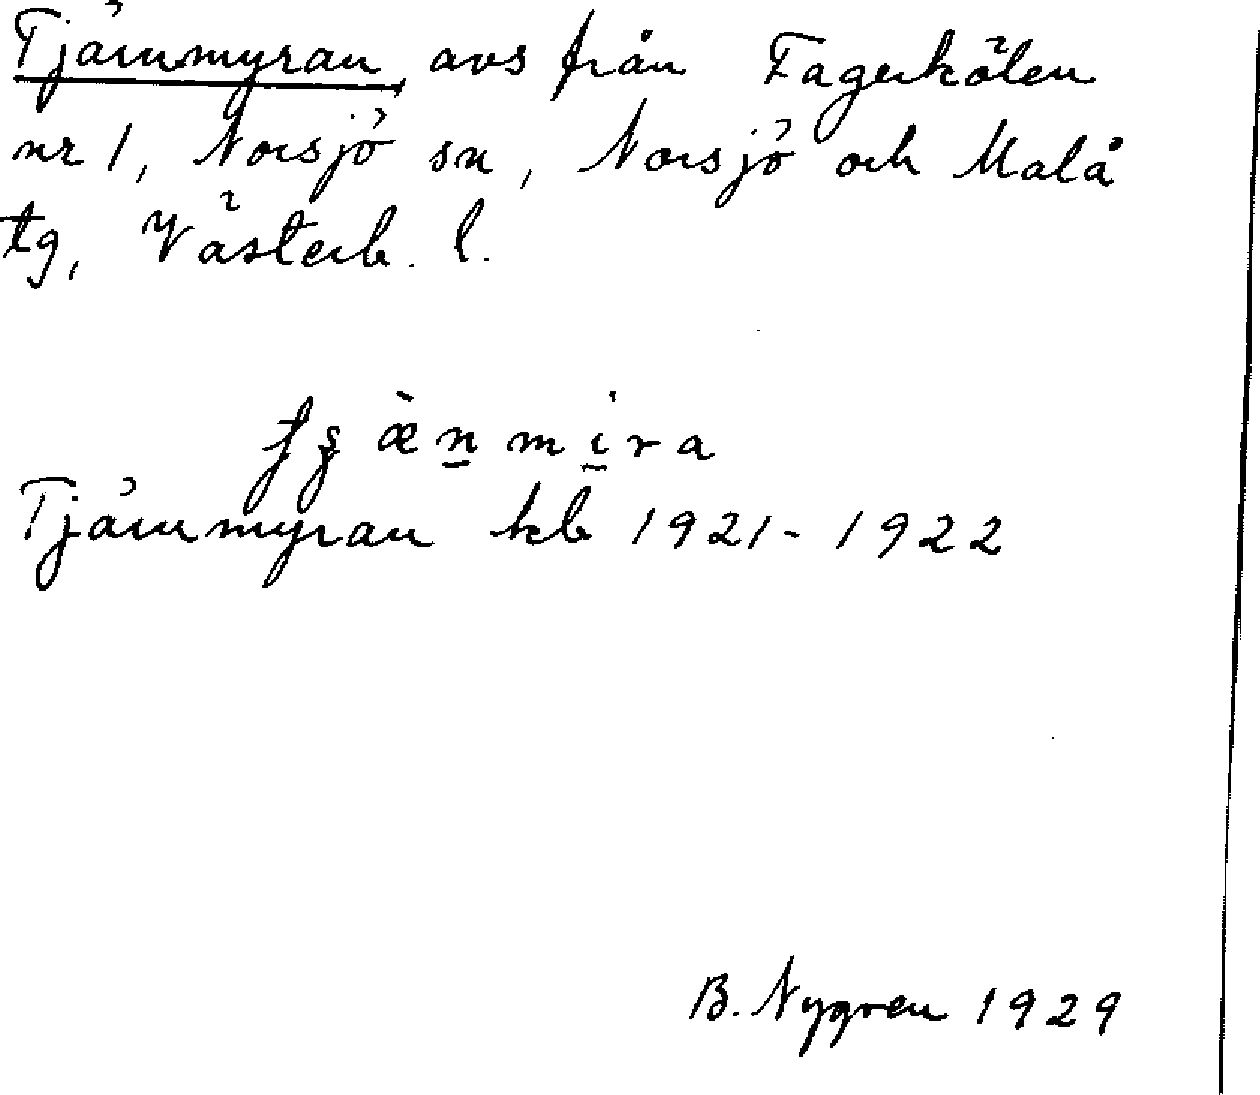 Tjärnmyran, avs från Fagerkölen
nr 1, Norsjö sn, Norsjö och Malå
tg, Västerb. l.
æ̀n̲mi̲ra
Tjärnmyran kb 1921-1922
B. Nygren 1929